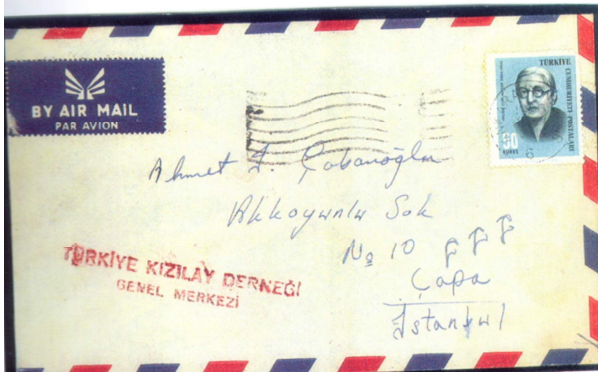 BY AIR MAIL
PAR AVION
TÜRKİYE
CUMHURİYETİ POSTALARI
60
KURUŞ
Ahmet
Akkoyunlu Sok
No 10
Çapa
İstanbul
TÜRKİYE KIZILAY DERNEĞİ
GENEL MERKEZİ